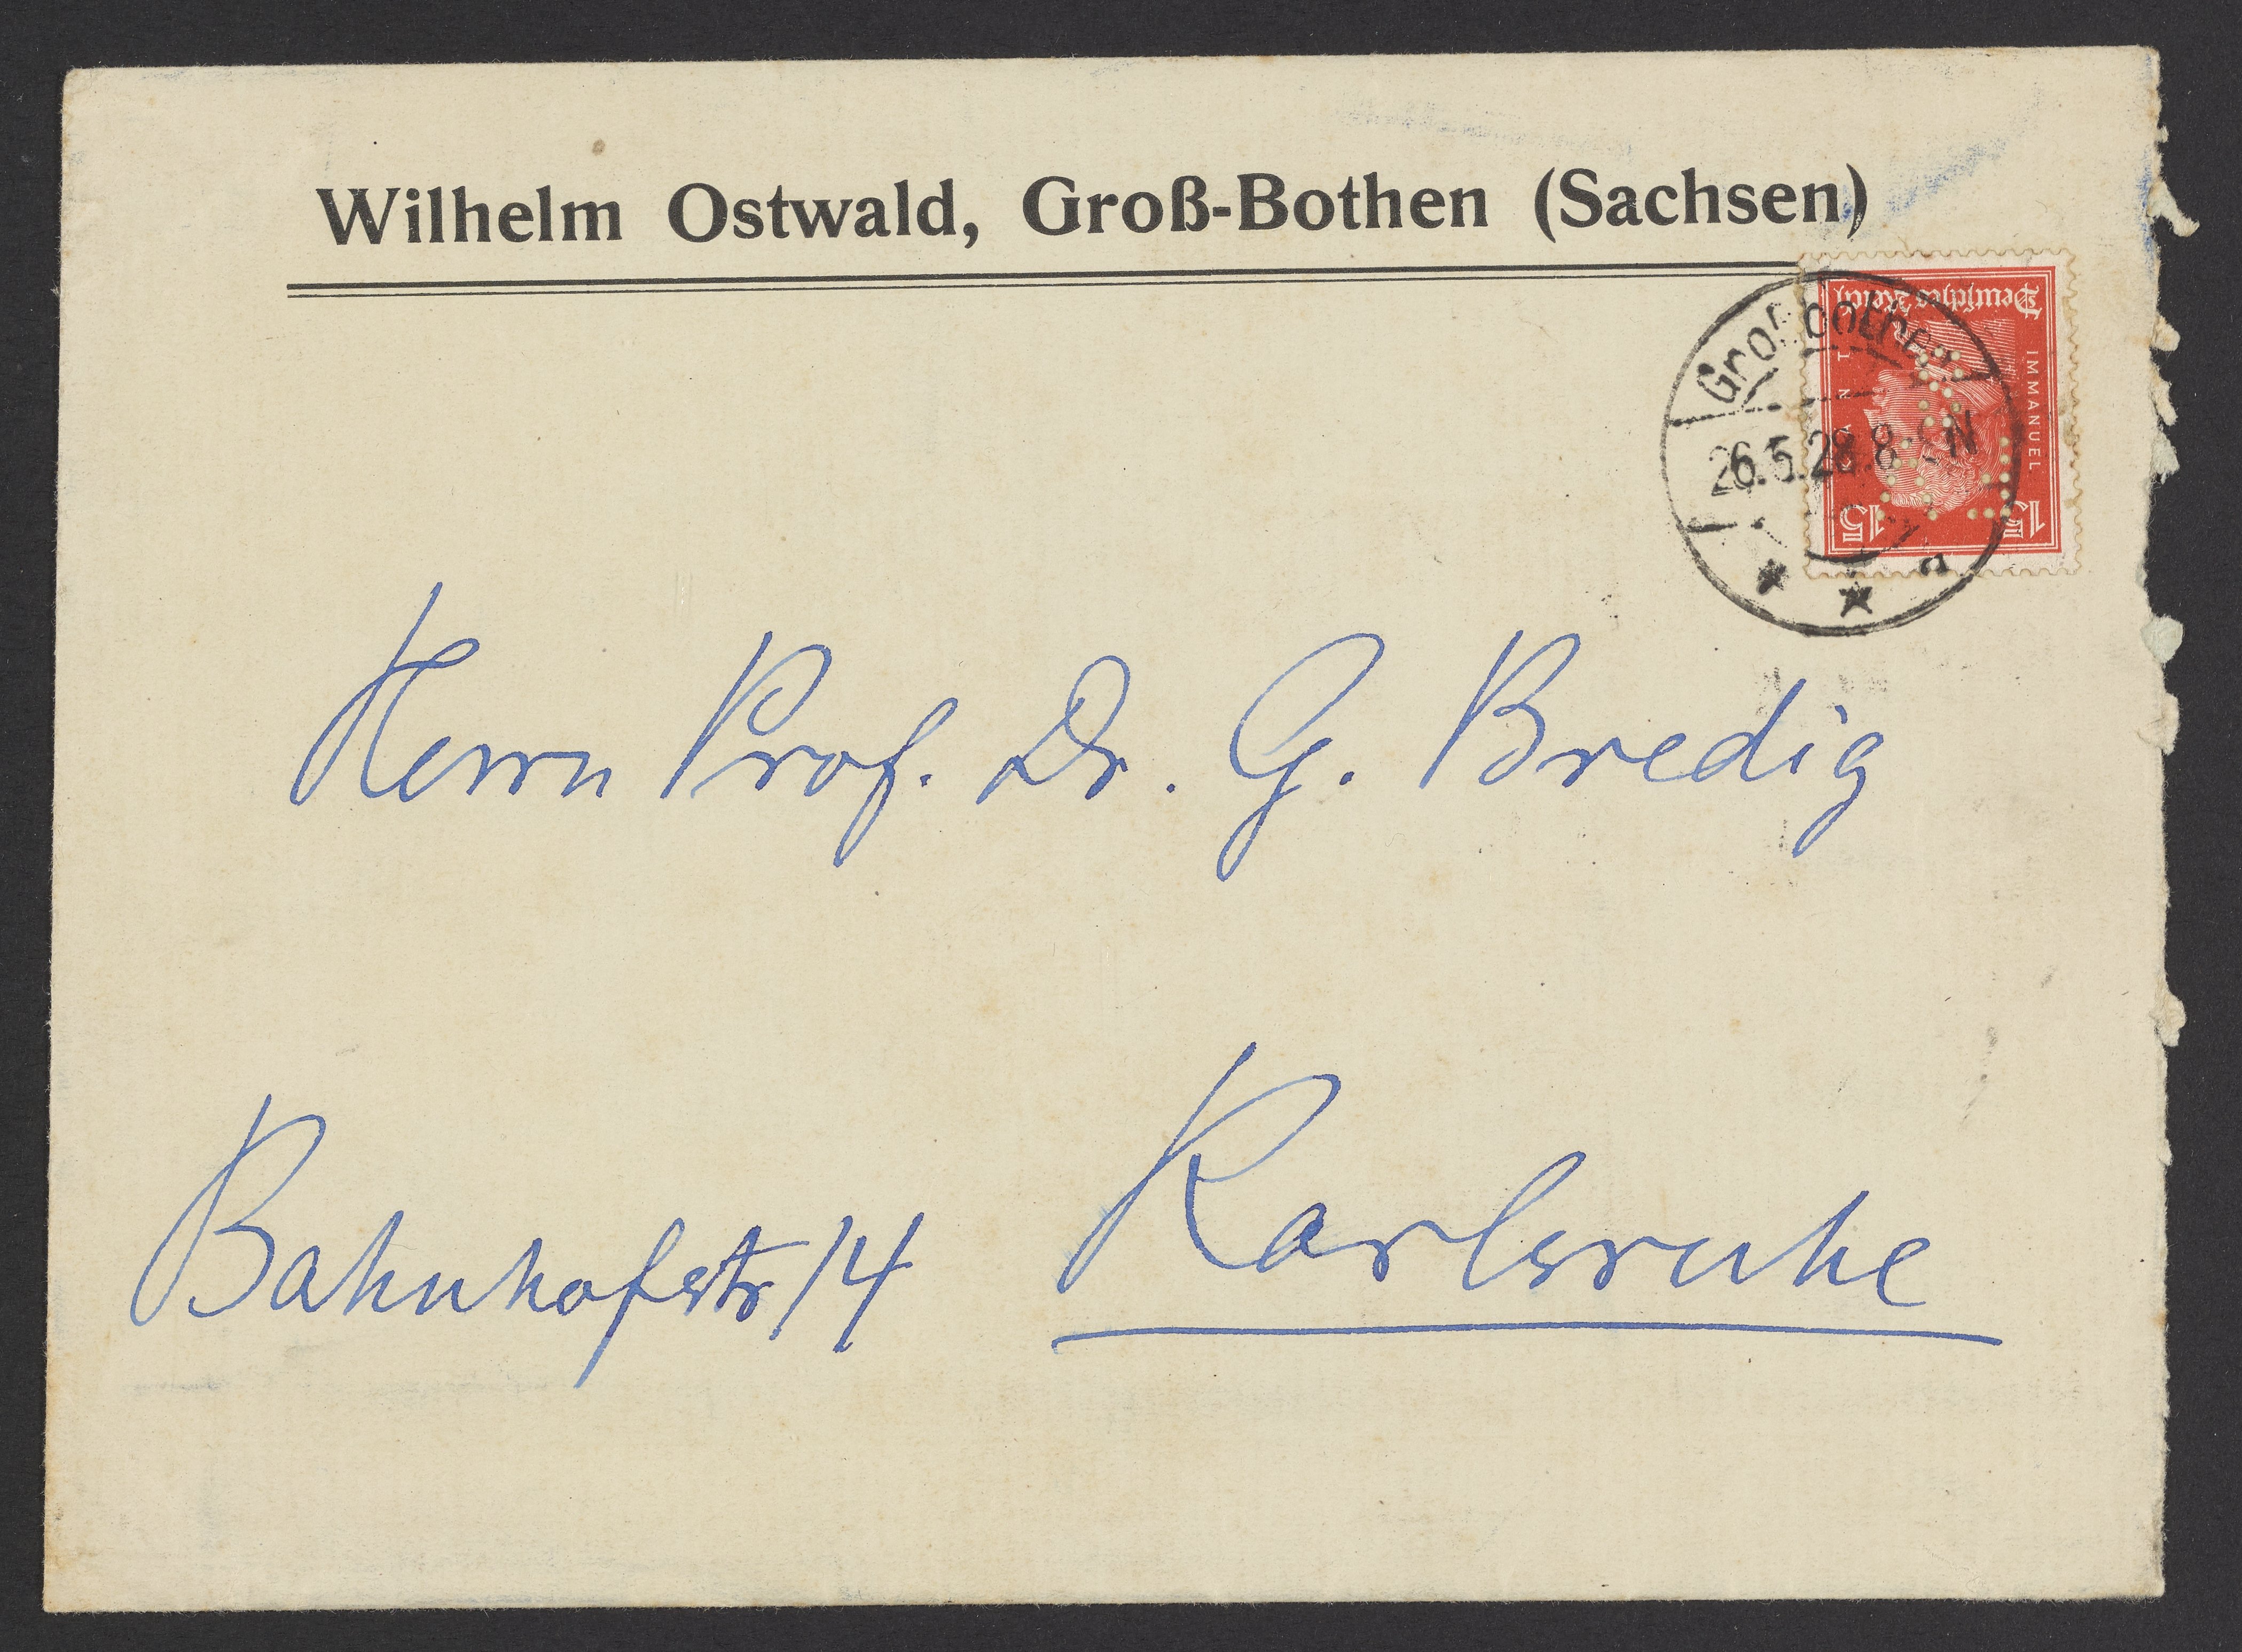 Wilhelm Ostwald, Groß-Bothen (Sachsen)
Deutsches Reich
IMMANUEL
KANT
15 15
Großbothen
26.5.28.8-9N
* * a
Herrn Prof. Dr. G. Bredig
Bahnhofstr 14 Karlsruhe